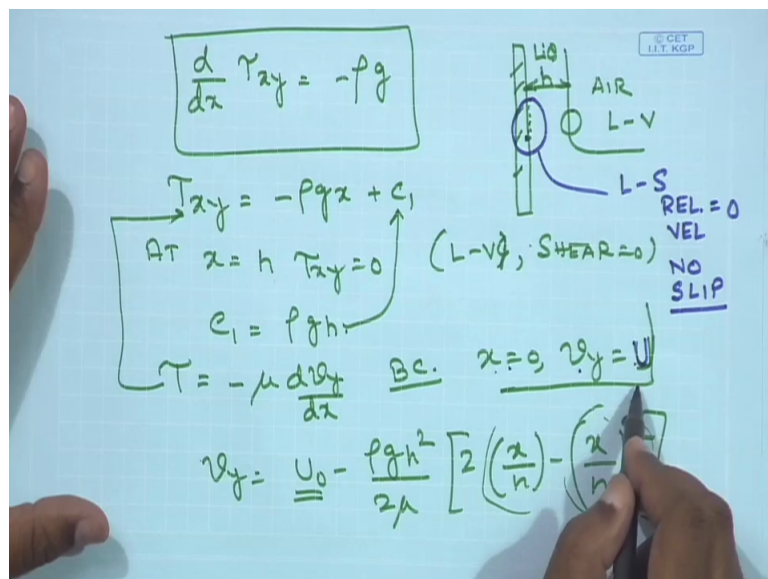 d/dx τxy = -ρg
© CET
I.I.T. KGP
LIQ
h
AIR
L-V
L-S
REL. = 0
VEL
NO
SLIP
τxy = -ρgx + C1
AT x = h τxy = 0 (L-V, SHEAR = 0)
C1 = ρgh
τ = -μ dvy/dx BC. x = 0, vy = U
vy = U0 - ρgh²/2μ [2(x/h) - (x/h)